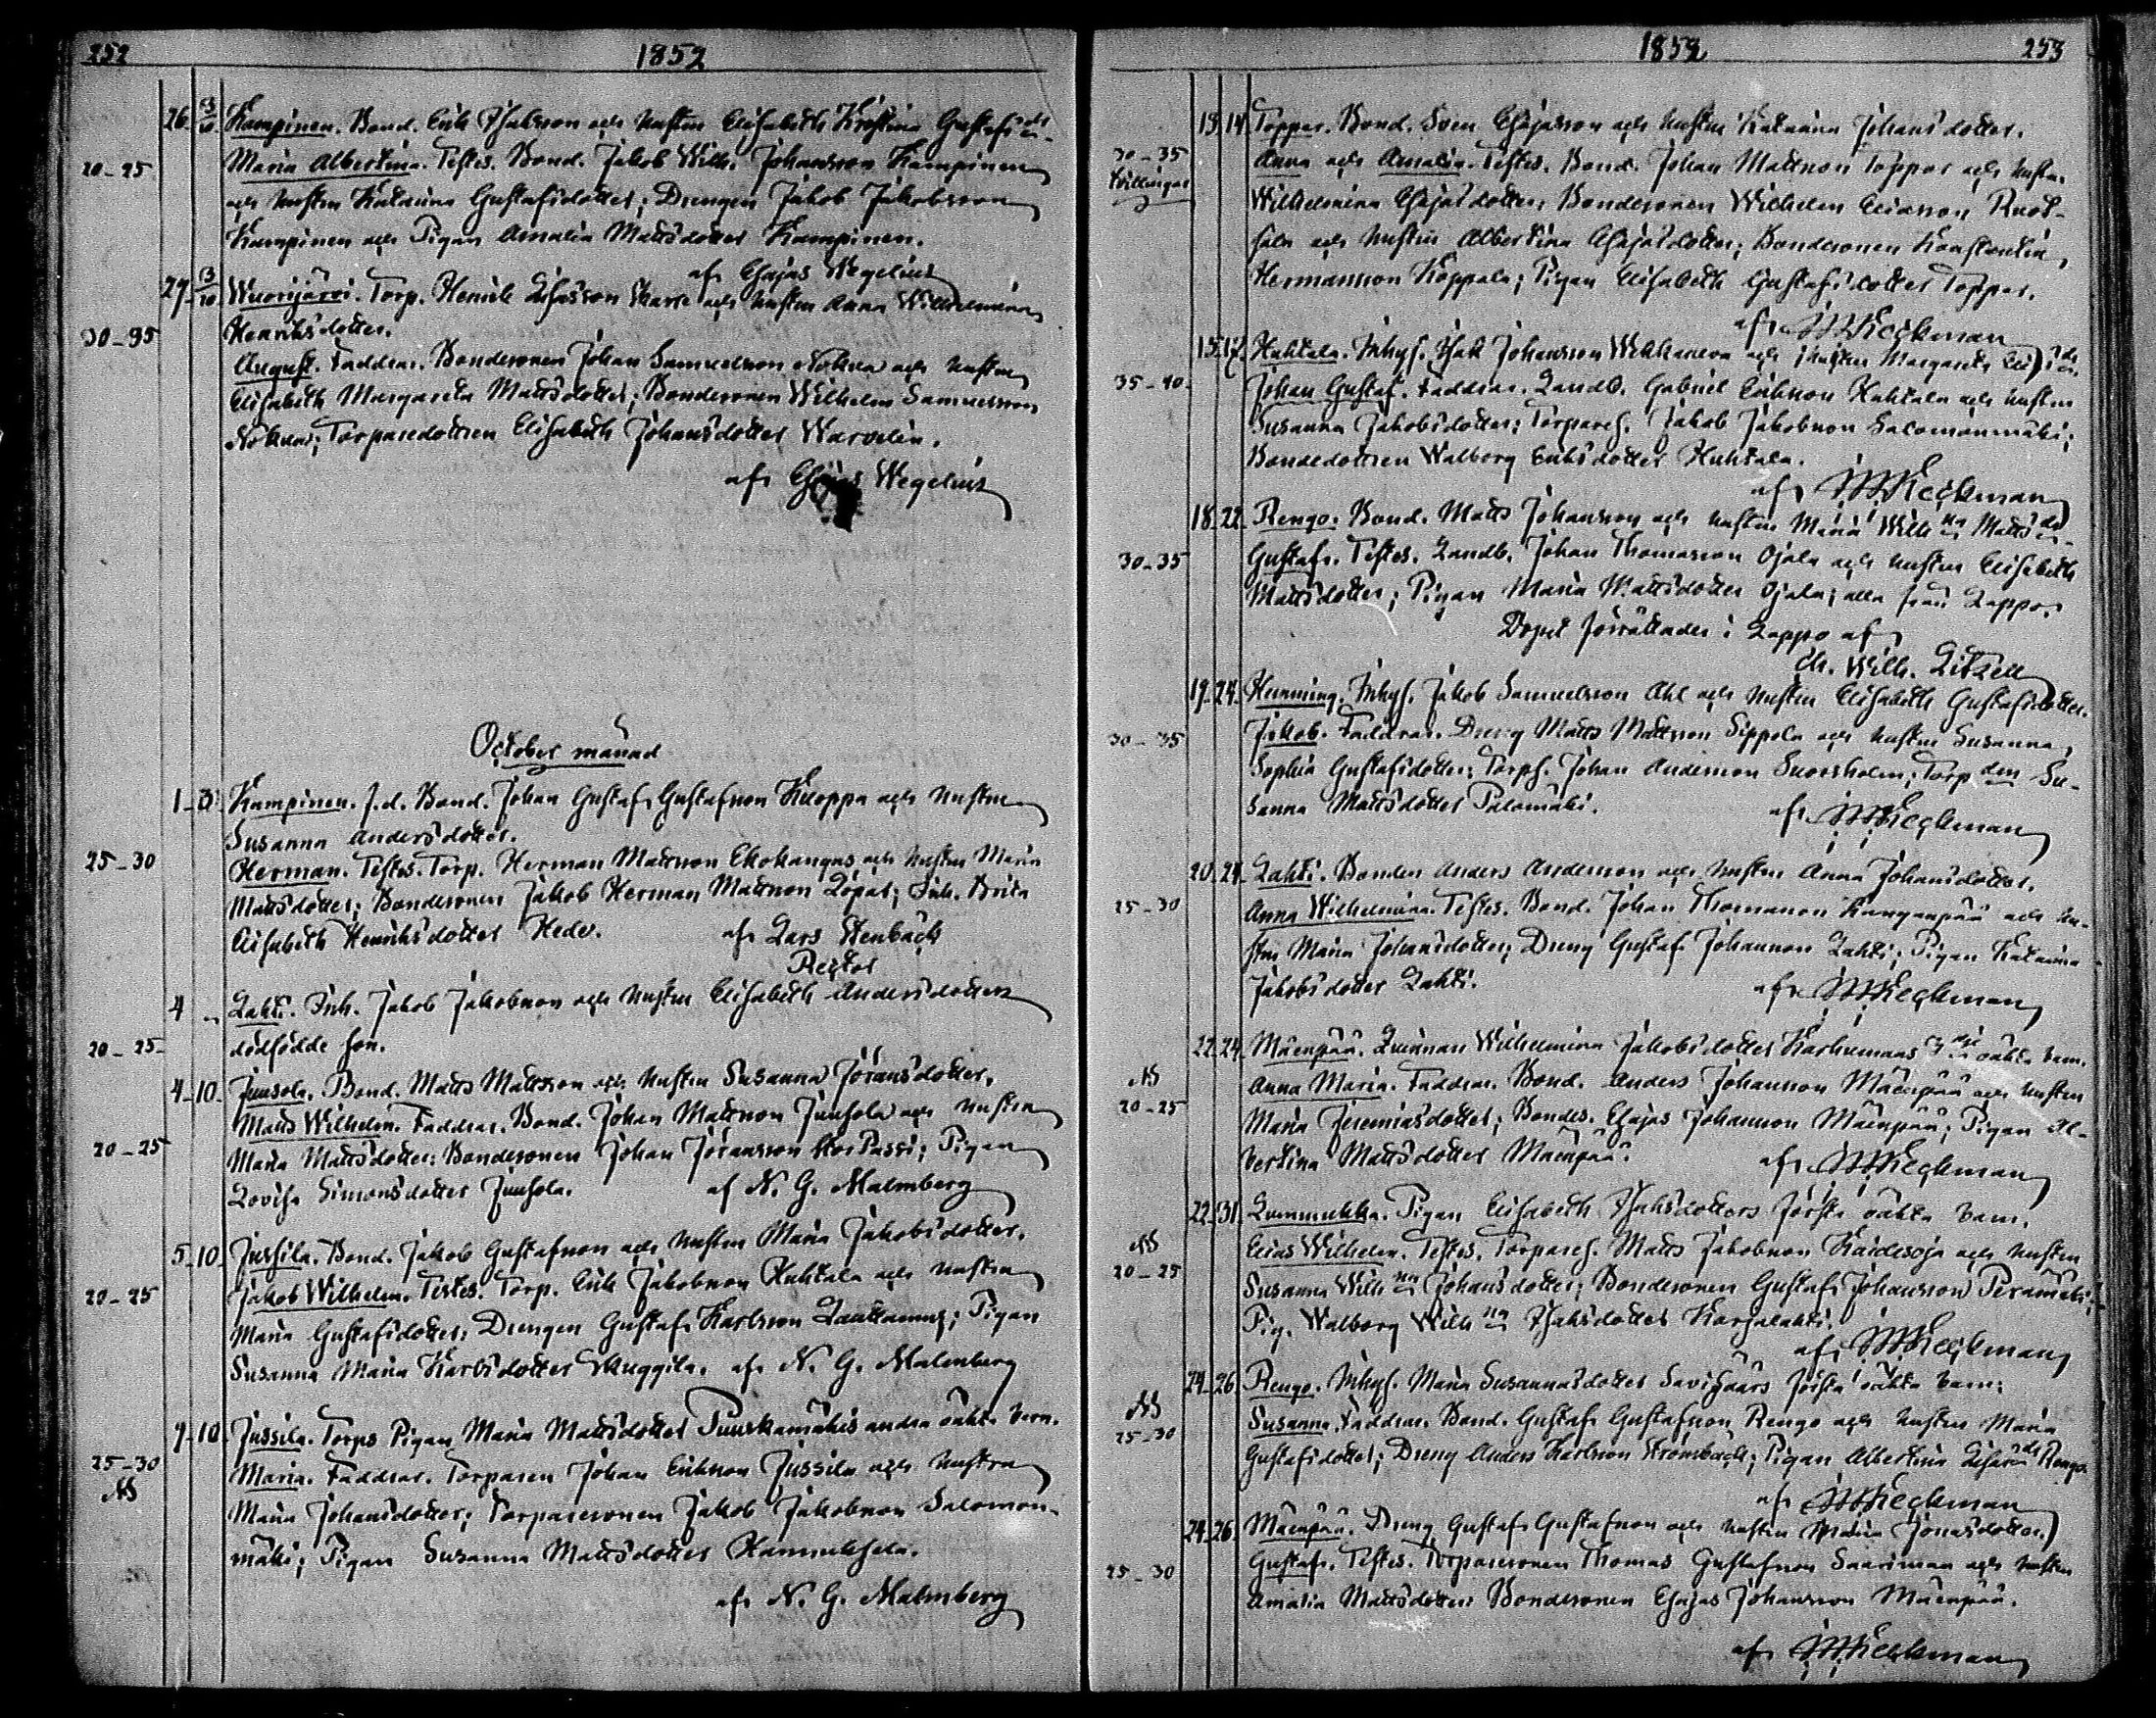 252
1852
26. 3/10. Kampinen. Bond. Erik Isaksson och hustru Elisabeth Kristina Gustafs dr
20-25
Maria Albertina. Testes. Bond. Jakob Wilh. Johansson Kampinen
och hustru Katarina Gustafsdotter; Drengen Jakob Jakobsson
Kampinen och Pigan Amalia Mattsdotter Kampinen.
af Esajas Wegelius
27. 3/10 Wuorijärvi. Torp. Henrik och hustru Anna Wilhelmina
30-35
Henriksdotter.
August. Faddrar. Bondesonen Johan Samuelsson och hustru
Elisabeth Margareta Mattsdotter; Bondesonen Wilhelm Samuelsson
Torparedottren Elisabeth Johansdotter
af Esajas Wegelius
October månad
1-3 Kampinen. f.d. Bond. Johan Gustaf Gustafsson Knoppa och hustru
Susanna Andersdotter.
25-30
Herman. Testes. Torp. Herman Mattsson Ekokangas och hustru Maria
Mattsdotter; Bondesonen Jakob Herman Mattsson Inh. Brita
Elisabeth Henriksdotter Hede. af Lars Stenbäck
Rector
4 " Lahti. Inh. Jakob Jakobsson och hustru Elisabeth Andersdotters
20-25
dödfödde son.
4-10. Juusola. Bond. Matts Mattsson och hustru Susanna Jöransdotter.
Matts Wilhelm. Faddrar. Bond. Johan Mattsson Juusola och hustru
20-25
Maria Mattsdotter; Bondesonen Johan Jöransson Pigan
Lovisa Simonsdotter Juusola. af N. G. Malmberg
5-10. Jussila. Bond. Jakob Gustafsson och hustru Maria Jakobsdotter.
20-25
Jakob Wilhelm. Testes. Torp. Erik Jakobsson Huhtala och hustru
Maria Gustafsdotter; Drengen Gustaf Karlsson Pigan
Susanna Maria Karlsdotter af N. G. Malmberg
9-10. Jussila. Torps Pigan Maria Mattsdotter Puuskamäkis andra oäkta barn.
25-30
Maria. Faddrar. Torparen Johan Eriksson Jussila och hustru
Maria Johansdotter; Torparesonen Jakob Jakobsson Salomon-
mäki; Pigan Susanna Mattsdotter Hannuksela.
af N. G. Malmberg
1852
253
13. 14. Toppar. Bond. Sven Esajasson och hustru Katarina Johansdotter.
30-35
Tvillingar
Anna och Amalia. Testes. Bond. Johan Mattsson Toppar och hustru
Wilhelmina Esajasdotter; Bondesonen Wilhelm Eliasson Ruot-
sala och hustru Albertina Esajasdotter; Bondesonen Konstantin
Hermansson Koppala; Pigan Elisabeth Gustafsdotter Toppar.
af Keckman
15. 17. Huhtala. Inhys. Isak Johansson och hustru Margareta
35-40.
Johan Gustaf. Faddrar. Landb. Gabriel Eriksson Huhtala och hustru
Susanna Jakobsdotter; Torpares. Jakob Jakobsson Salomonmäki;
Bondedottren Walborg Eriksdotter Huhtala.
af Keckman
18. 22. Rengo. Bond. Matts Johansson och hustru Maria Wilh na Matts dr
30-35
Gustaf. Testes. Landb. Johan Thomasson Ojala och hustru Elisabeth
Mattsdotter; Pigan Maria Mattsdotter Ojala; alla från Lappo.
Dopet förrättades i Lappo af
Ch. Wilh. Litzell
19. 24. Hemming. Inhys. Jakob Samuelsson Ahl och hustru Elisabeth Gustafsdotter.
30-35
Jakob. Faddrar. Dreng Matts Mattsson Sippola och hustru Susanna
Sophia Gustafsdotter; Torps. Johan Andersson Torp den Su-
sanna Mattsdotter Palomäki.
af Keckman
20. 24. Lahti. Bonden Anders Andersson och hustru Anna Johansdotter.
25-30
Anna Wilhelmina. Testes. Bond. Johan Thomasson Kangaspää och hu-
stru Maria Johansdotter; Dreng Gustaf Johansson Lahti; Pigan Katarina
Jakobsdotter Lahti.
af Keckman
22. 24. Mäenpää. Qvinnan Wilhelmina Jakobsdotter oäkta barn.
20-25
Anna Maria. Faddrar. Bond. Anders Johansson Mäenpää och hustru
Maria Jeremiasdotter; Bondes. Esajas Johansson Mäenpää; Pigan Al-
bertina Mattsdotter Mäenpää.
af Keckman
22. 31. Lummukka. Pigan Elisabeth Isaksdotters första oäkta barn.
20-25
Elias Wilhelm. Testes. Torpares. Matts Jakobsson Kaidesoja och hustru
Susanna Wilh na Johansdotter; Bondesonen Gustaf Johansson Perämäki;
Pig. Walborg Wilh na Isaksdotter Karjalahti.
af Keckman
24. 26. Rengo. Inhys. Maria Susannasdotter första oäkta barn:
25-30
Susanna. Faddrar. Bond. Gustaf Gustafsson Rengo och hustru Maria
Gustafsdotter; Dreng Anders Karlsson Strömbäck; Pigan Albertina Rengo.
af Keckman
24. 26. Mäenpää. Dreng Gustaf Gustafsson och hustru Maria Jonasdotter.
25-30
Gustaf. Testes. Torparesonen Thomas Gustafsson Saarimaa och hustru
Amalia Mattsdotter; Bondesonen Esajas Johansson Mäenpää.
af Keckman